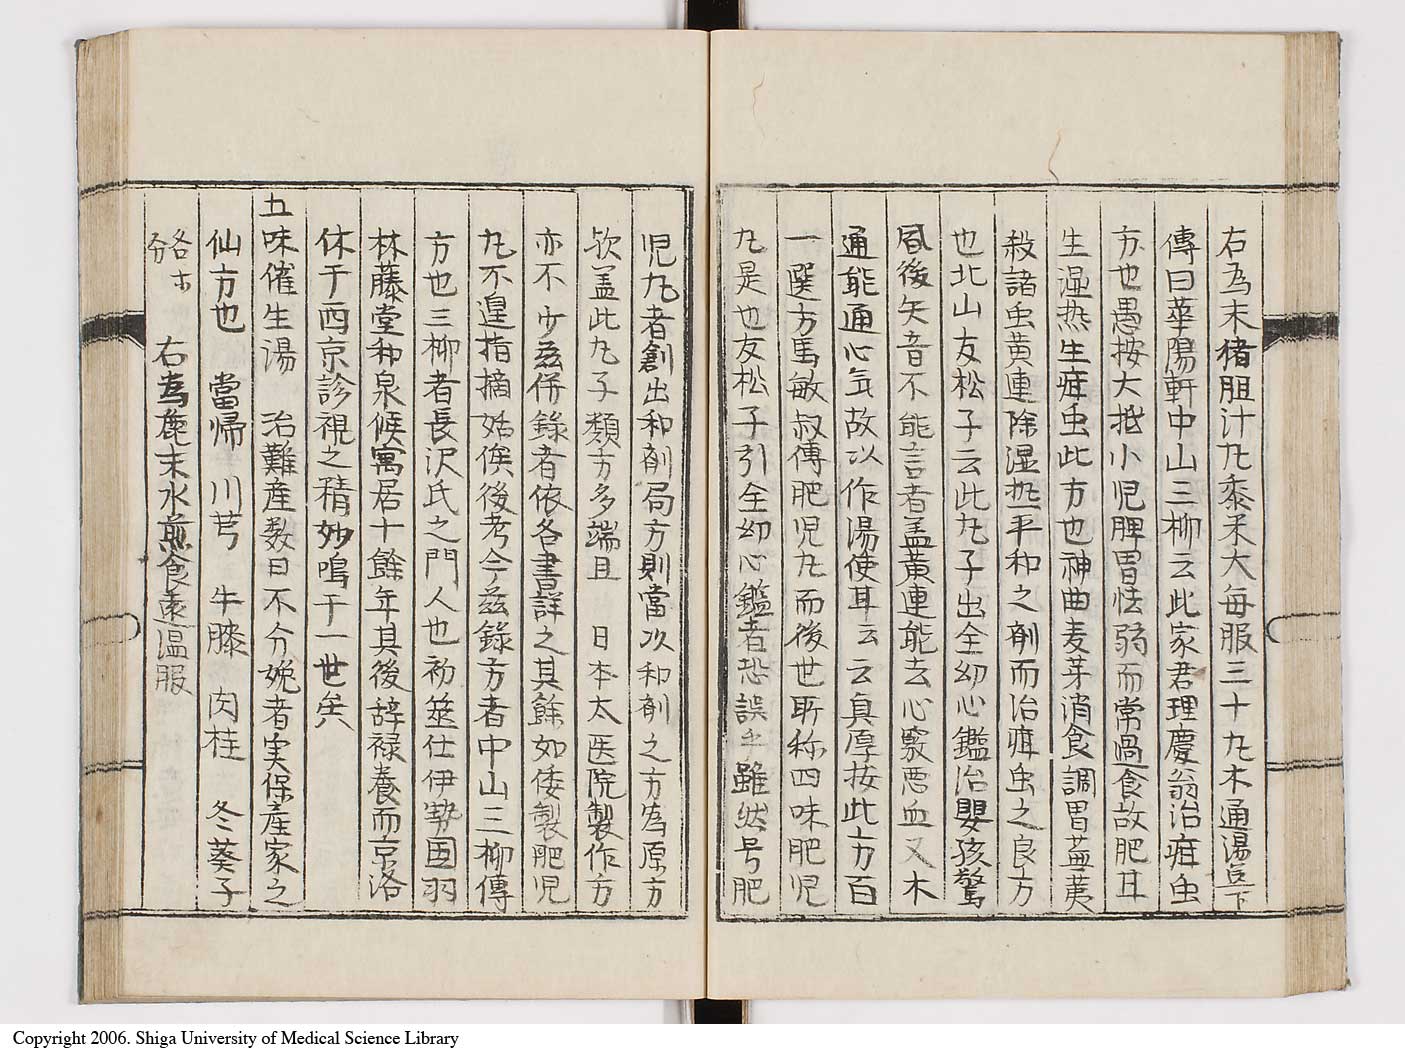 右為末猪胆汁丸黍米大每服三十丸木通湯足下
傳曰華陽軒中山三柳云此家君理慶翁治疳虫
方也愚按大抵小児脾胃怯弱而常過食故肥且
生湿热生疳虫此方也神曲麦芽消食調胃蕪荑
殺諸虫黄連除湿热平和之剤而治疳虫之良方
也北山友松子云此丸子出全幼心鑑治嬰孩驚
風後失音不能言者盖黄連能去心竅悪血又木
通能通心気故以作湯使耳云云真厚按此方百
一選方馬敏叔傳肥児丸而後世所称四味肥児
丸是也友松子引全幼心鑑者恐誤乎雖然号肥
児丸者創出和剤局方則當以和剤之方為原方
欤盖此丸子類方多端且 日本太医院製作方
亦不少茲併錄者依各書詳之其餘如倭製肥児
丸不遑指摘姑俟後考今茲錄方者中山三柳傳
方也三柳者長沢氏之門人也初筮仕伊勢国羽
林藤堂和泉候寓居十餘年其後辞禄養而京洛
休于西京診視之精妙鳴于一世矣
五味催生湯 治難産数日不分娩者実保産家之
仙方也 當帰 川芎 牛膝 肉桂 冬葵子
各木分 右為麁末水煎食遠温服
Copyright 2006. Shiga University of Medical Science Library